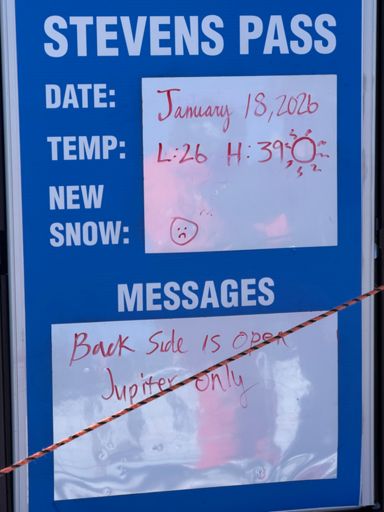 STEVENS PASS
DATE: January 18, 2026
TEMP: L:26 H:39
NEW
SNOW:
MESSAGES
Back Side is open
Jupiter only